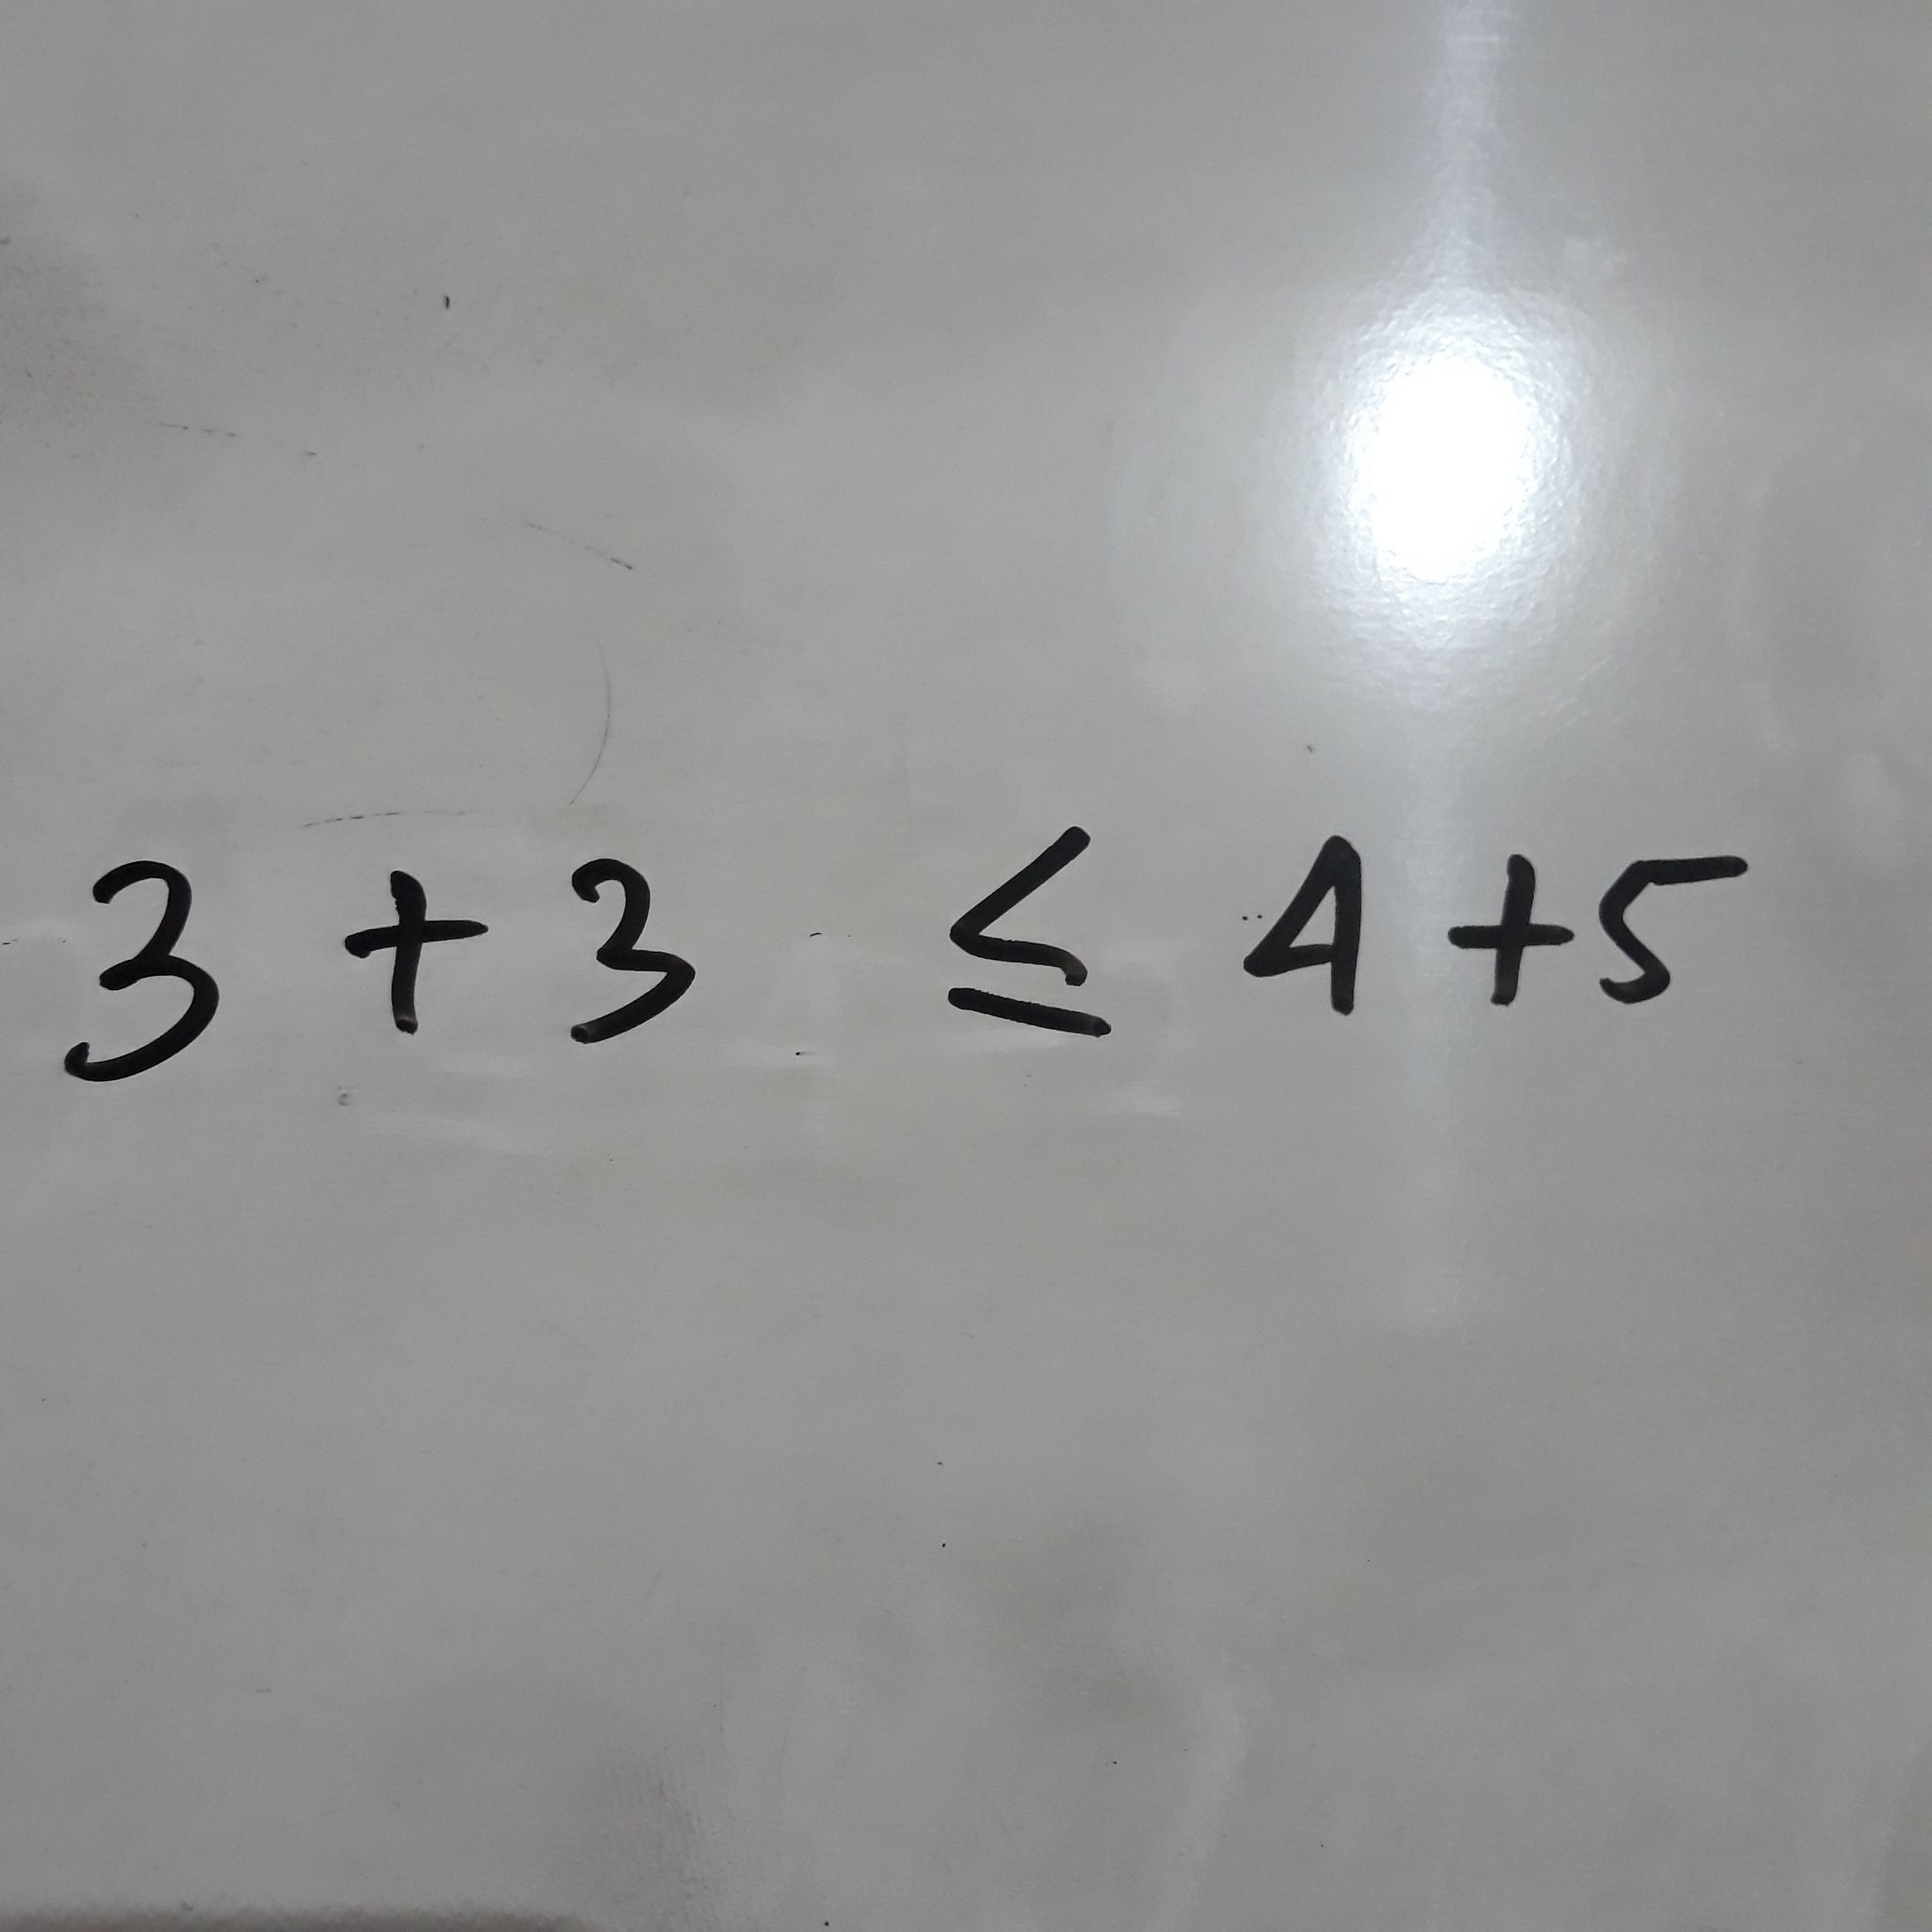 3 + 3 ≤ 4 + 5